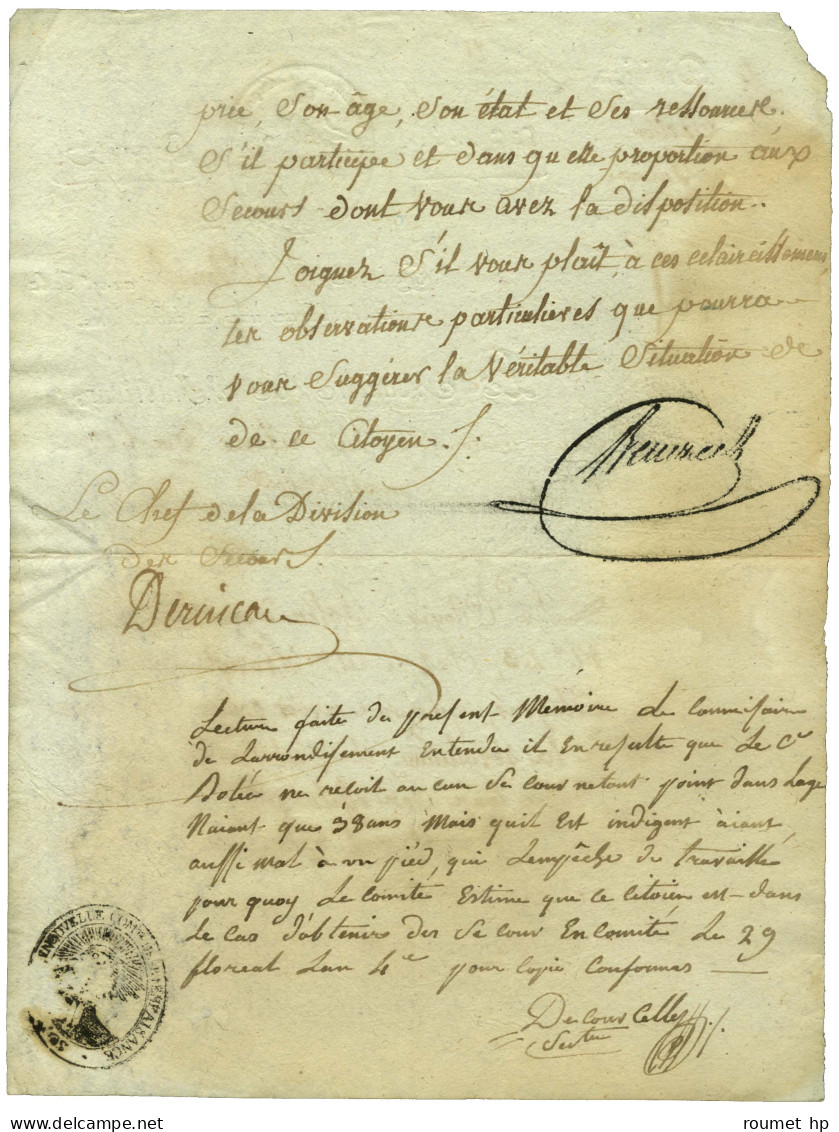 prie, Son âge, Son état et Ses ressources.
S'il participe et dans quelle proportion aux
Secours dont vous avez la disposition.
Joignez S'il vous plaît, à ces eclaircissemens,
les observations particulieres que pourra
vous Suggérer la Véritable Situation de
de ce Citoyen ./.
Le Chef de la Division
des Secours
Lecture faite du present Mémoire Le Commissaire
de Larrondissement Entendu il En resulte que Le Cen
ne recoit aucun Se cour netant point dans Lage
Naiant que 38 ans Mais quil Est indigent aiant
aussi Mal à un piéd, qui Lempêche de travaillé
pour quoy Le Comité Estime que ce Citoien est dans
Le Cas d'obtenir des Se cour En Comité Le 29
floreal Lan 4e pour Copie Conformes
De Cour Celles
BIENFAISANCE
roumet hp
delcampe.net